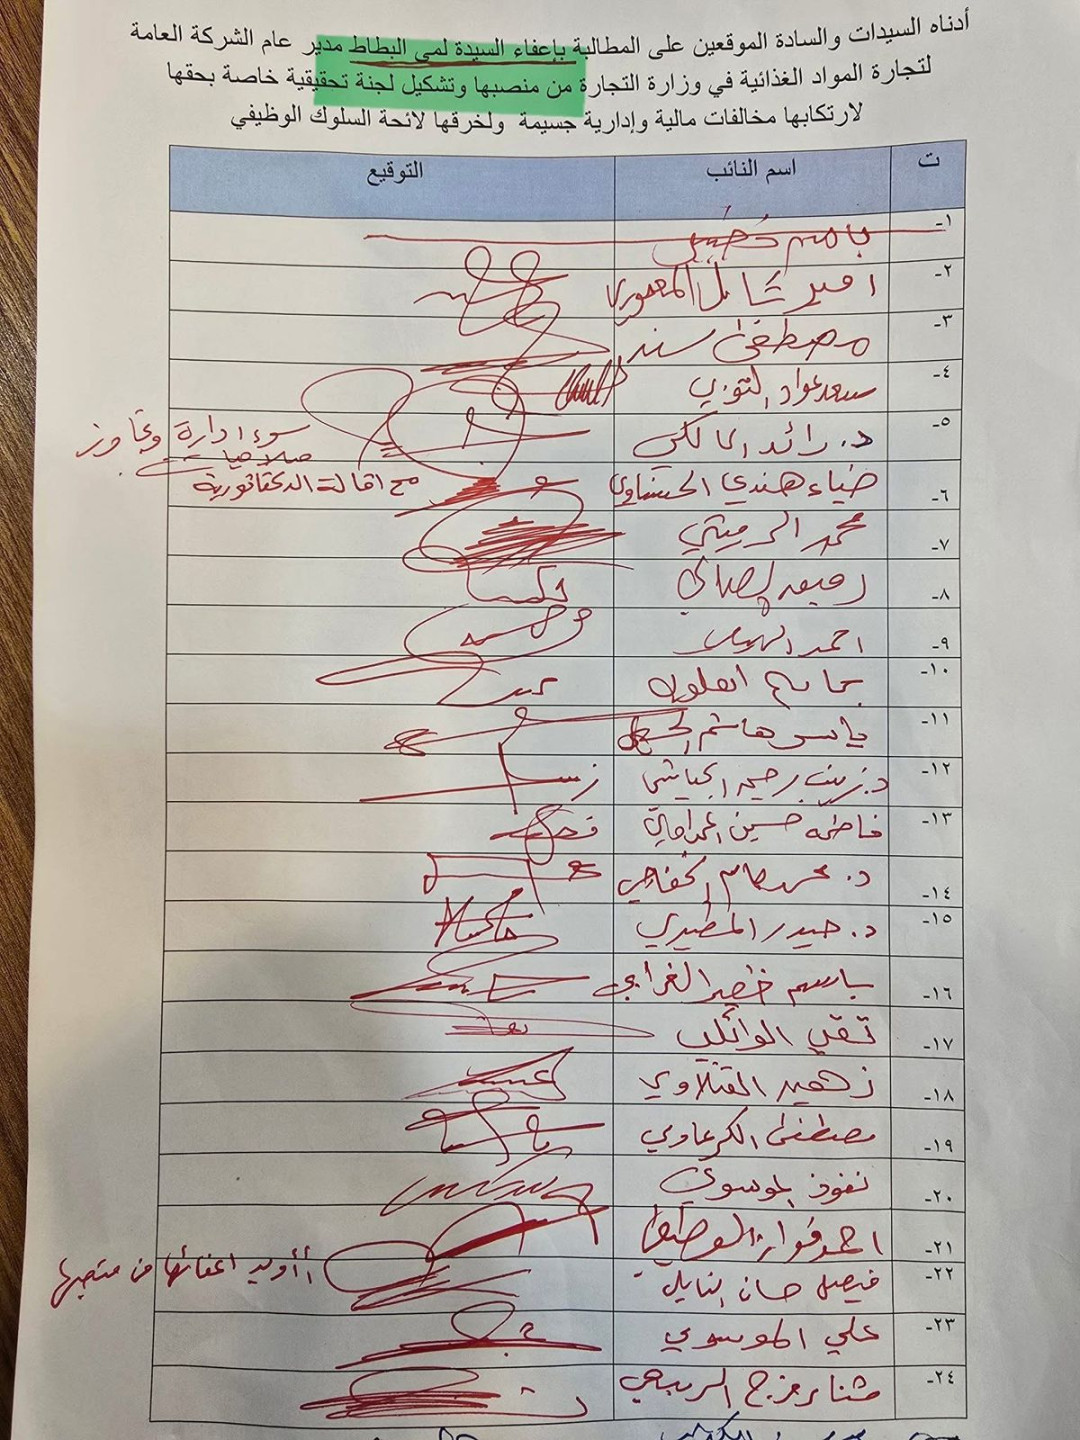 أدناه السيدات والسادة الموقعين على المطالبة بإعفاء السيدة لمى البطاط مدير عام الشركة العامة
لتجارة المواد الغذائية في وزارة التجارة من منصبها وتشكيل لجنة تحقيقية خاصة بحقها
لارتكابها مخالفات مالية وإدارية جسيمة ولخرقها لائحة السلوك الوظيفي
ت اسم النائب التوقيع
١-
٢- امير شامل المعموري
٣- مصطفى سند
٤- سعد عواد التوبي
٥- د. رائد المالكي سوء ادارة وتجاوز
صلاحيات
٦- ضياء هندي الحسناوي مع اقالة الدكتاتورية
٧- محمد الرميثي
٨- رفيق الصالحي
٩- احمد
١٠-
١١- ياسر هاشم
١٢- د. زينب رحيم الجياشي
١٣- فاطمة حسين
١٤- د. الخفاجي
١٥- د. حيدر المطيري
١٦- باسم خضير الغرابي
١٧- تقي الوائلي
١٨- زهير الفتلاوي
١٩- مصطفى الكرعاوي
٢٠- نفوذ الموسوي
٢١- احمد فواز الوطيفي
٢٢- فيصل حسان النايلي أأويد اعفائها من منصبها
٢٣- علي الموسوي
٢٤- مزح الربيعي